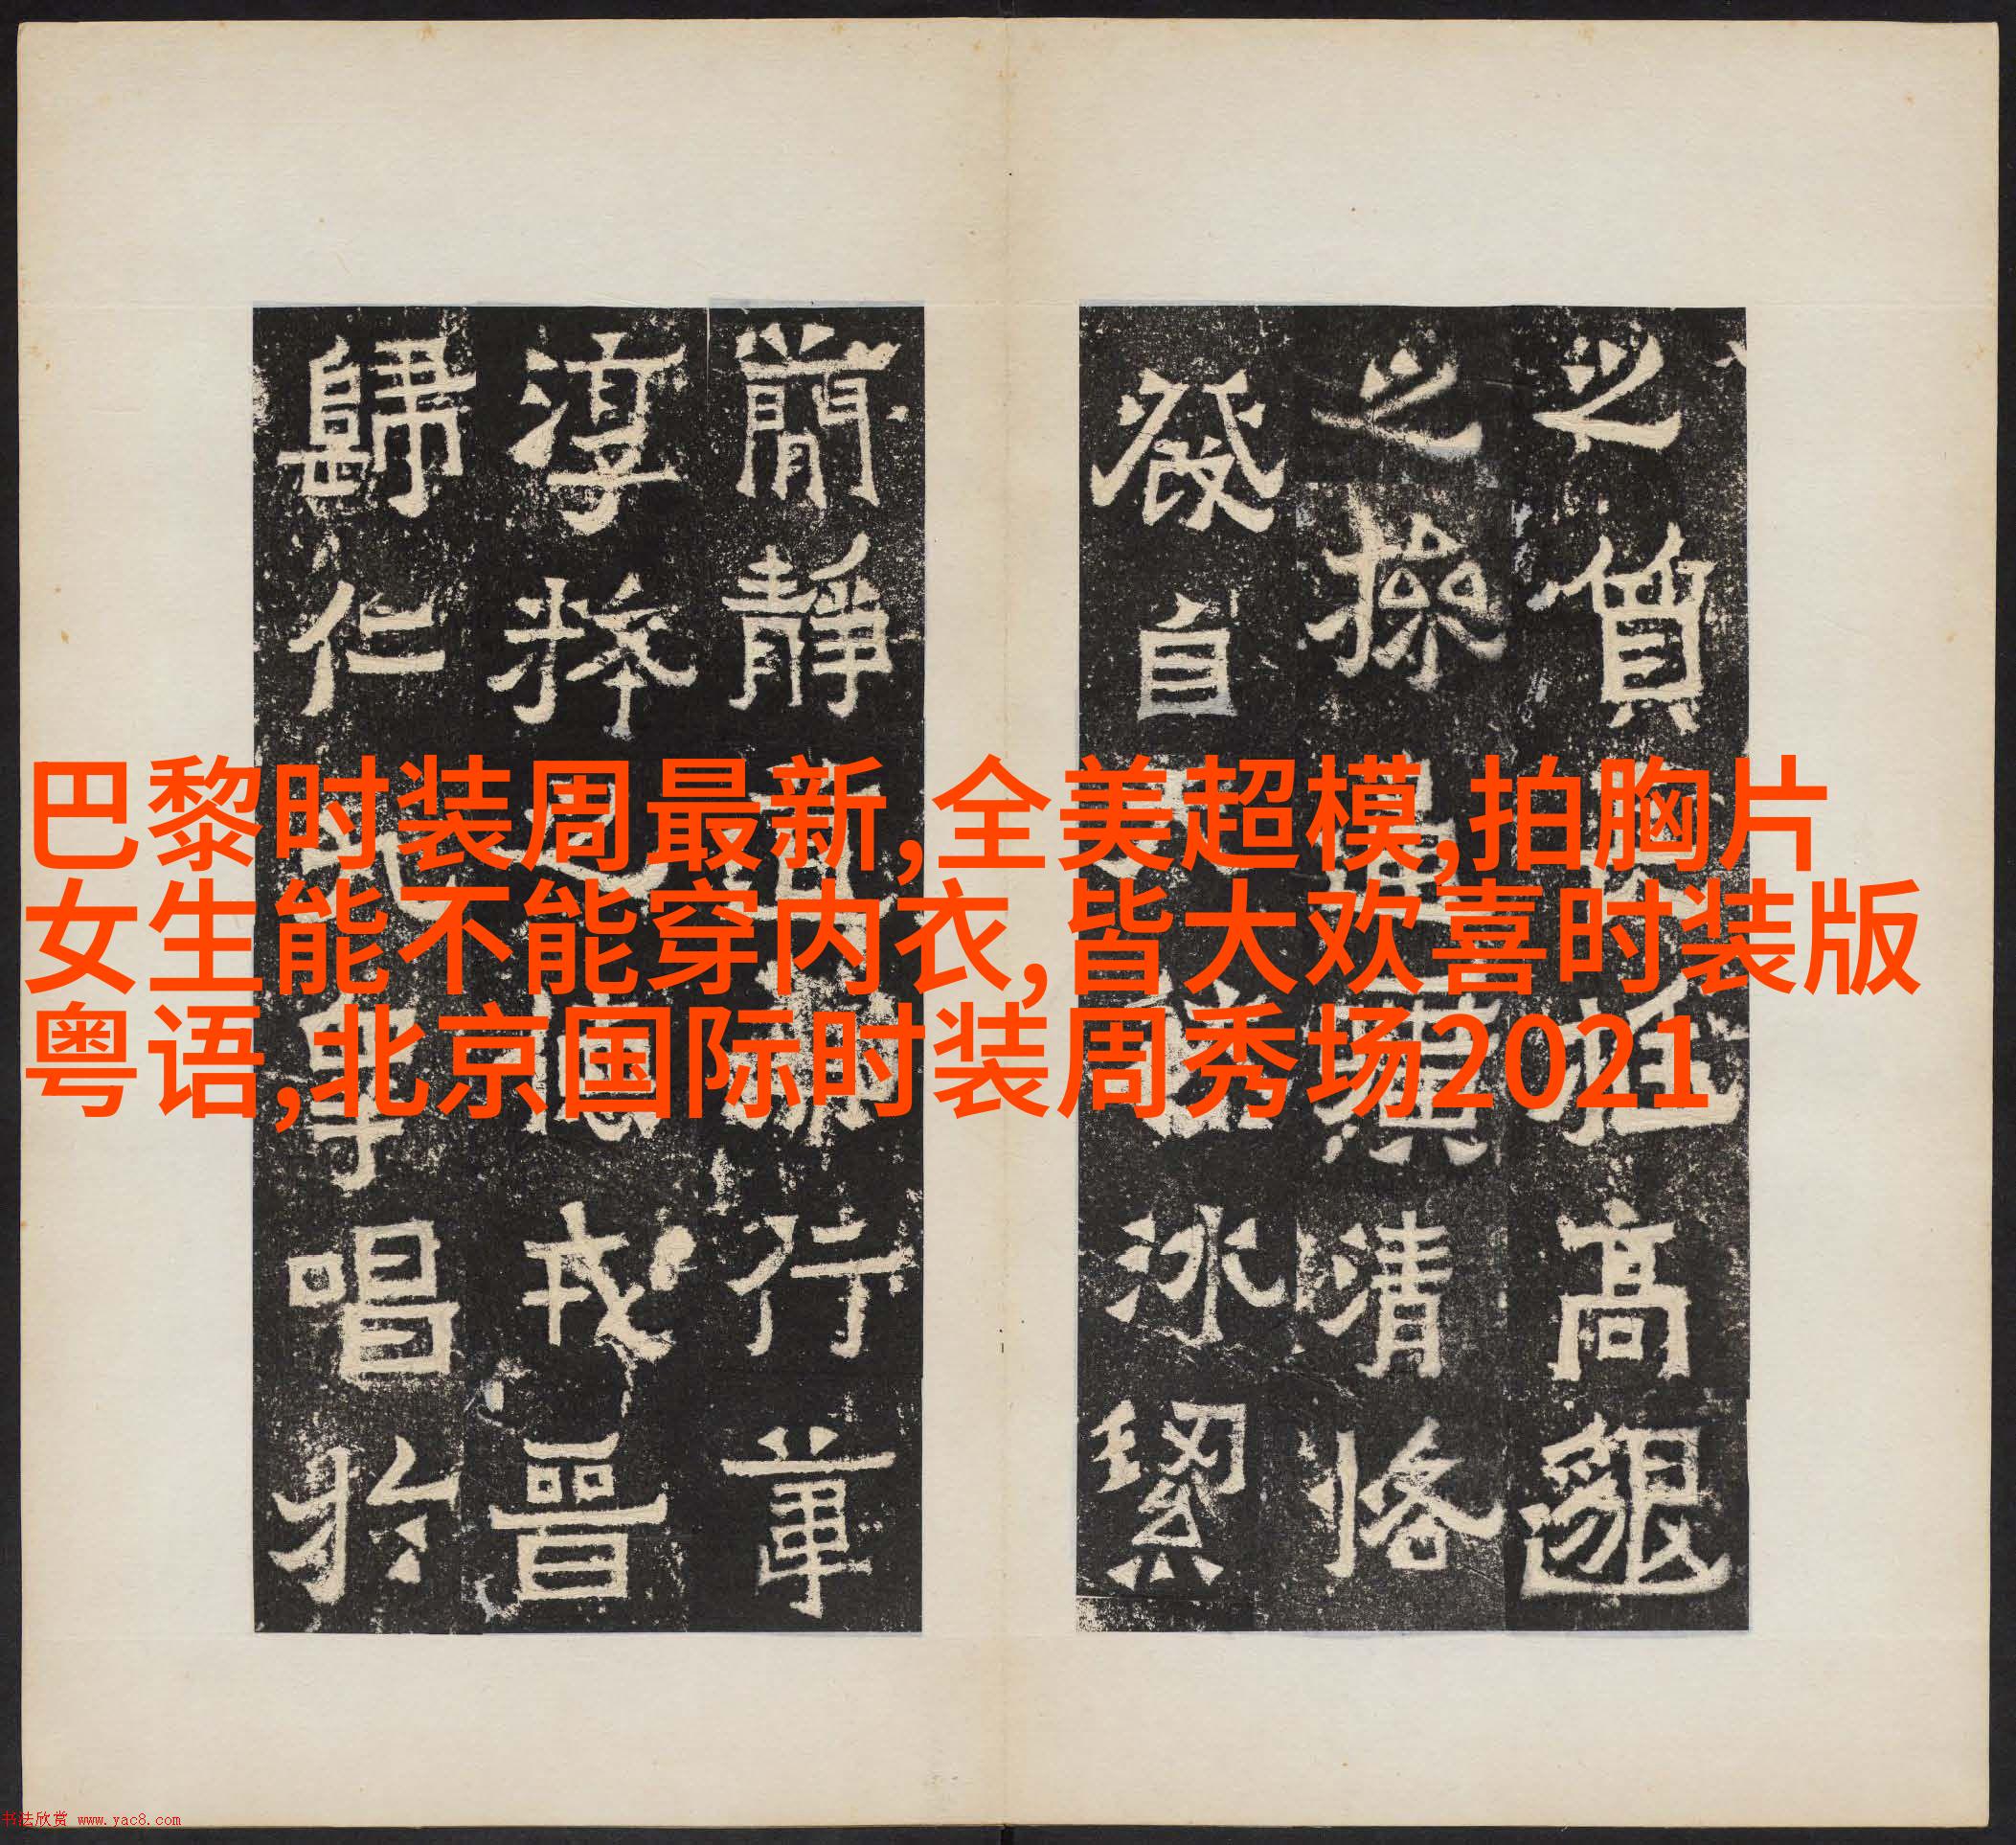 巴黎时装周最新,全美超模,拍胸片
女生能不能穿内衣,皆大欢喜时装版
粤语,北京国际时装周秀场2021
之質挺高邈
之操清恪
發自冰絜
簡靜行葦
淳粹之德戎晉
歸仁九皋唱於
书法欣赏 www.yac8.com